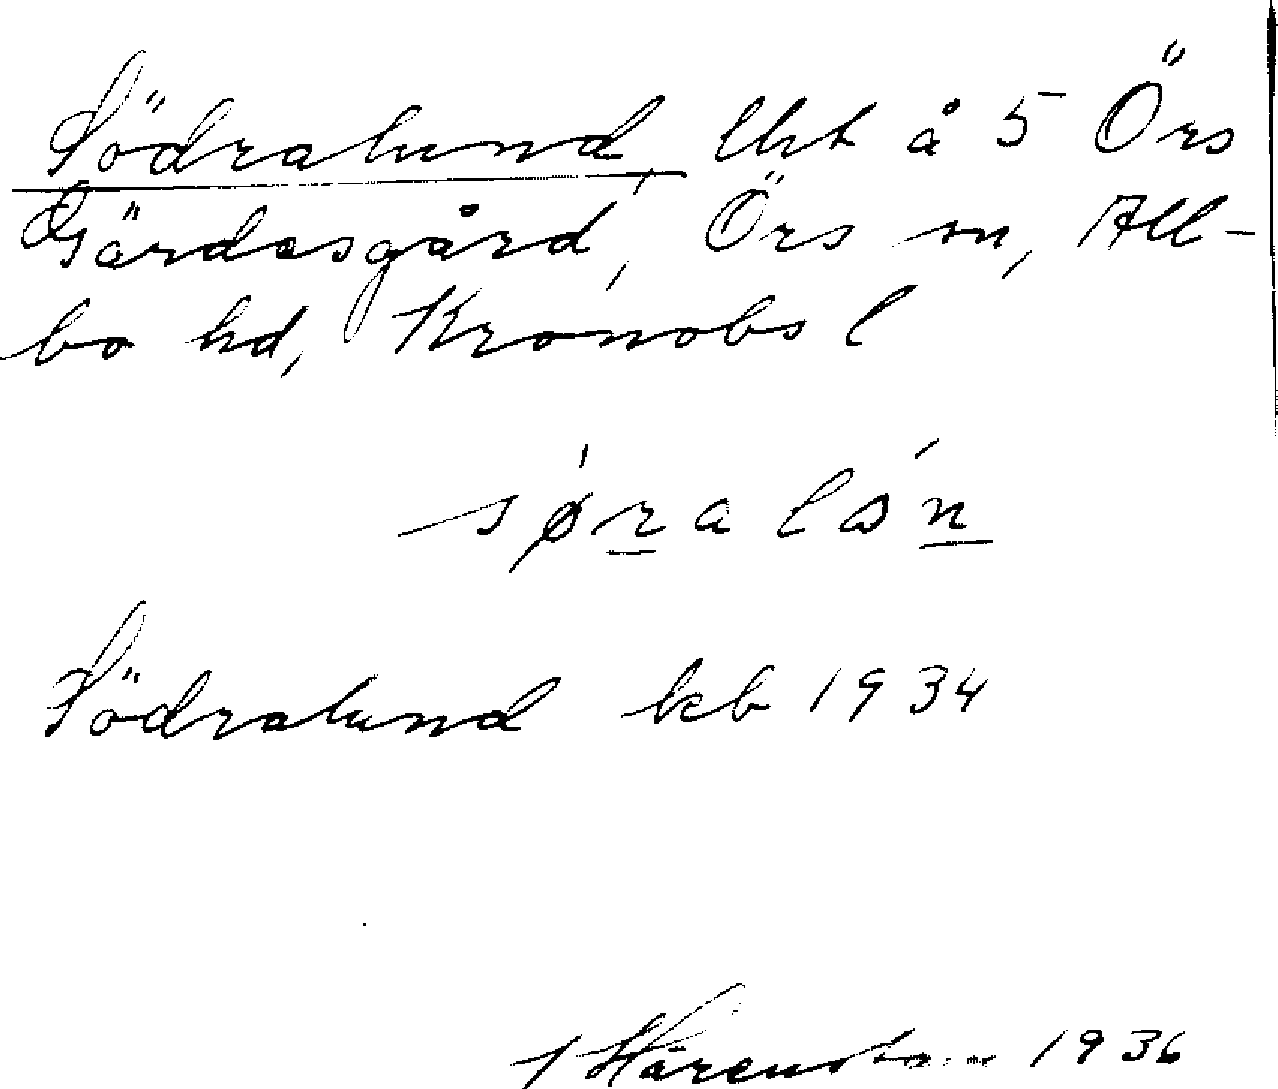 Södralund, lht å 5 Örs
Gärdesgård, Örs sn, All-
bo hd, Kronobs l
sø̀ralón
Södralund kb 1934
1936